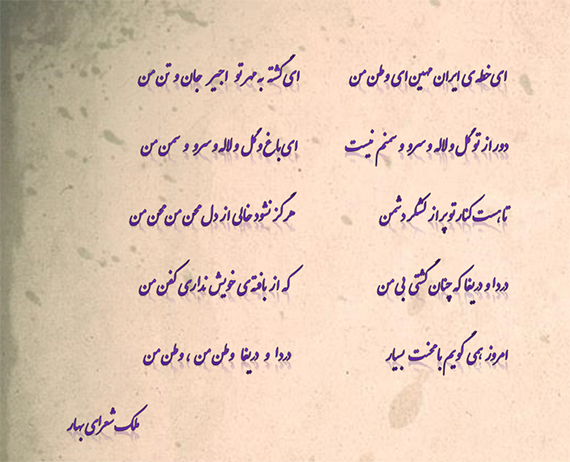 ای خطه‌ی ایران مهین ای وطن من ای گشته به مهر تو اجیر جان و تن من
دور از تو گل و لاله و سرو و سمنم نیست ای باغ و گل و لاله و سرو و سمن من
تا هست کنار تو پر از لشکر دشمن هرگز نشود خالی از دل محن من محن من
دردا و دریغا که چنان گشتی بی من که از بافته‌ی خویش نداری کفن من
امروز همی گویم با محنت بسیار دردا و دریغا وطن من ، وطن من
ملک شعرای بهار